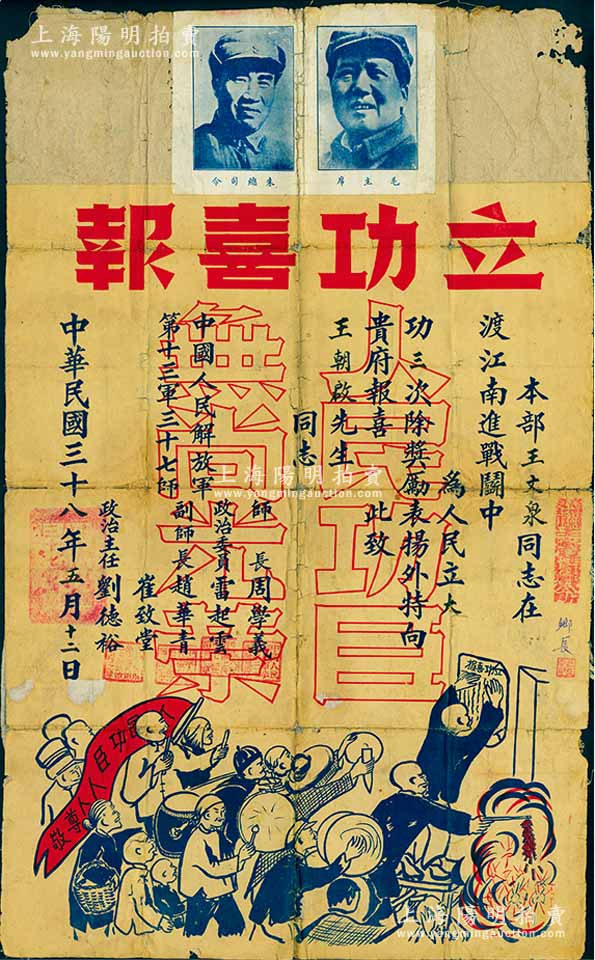 上海陽明拍賣
www.yangmingauction.com
上海陽明拍賣
www.yangmingauction.com
朱總司令
毛主席
立功喜報
人民功臣
無尚光榮
本部王文泉同志在
渡江南進戰鬪中
為人民立大
功三次除獎勵表揚外特向
貴府報喜 此致
王朝啟先生
同志
中國人民解放軍
第十三軍三十七師
師長周學義
政治委員雷起雲
副師長趙華青
崔致堂
政治主任劉德裕
中華民國三十八年五月十二日
鄉長
上海陽明拍賣
www.yangmingauction.com
立功喜報
敬尊人人
臣功民人
上海陽明拍賣
www.yangmingauction.com